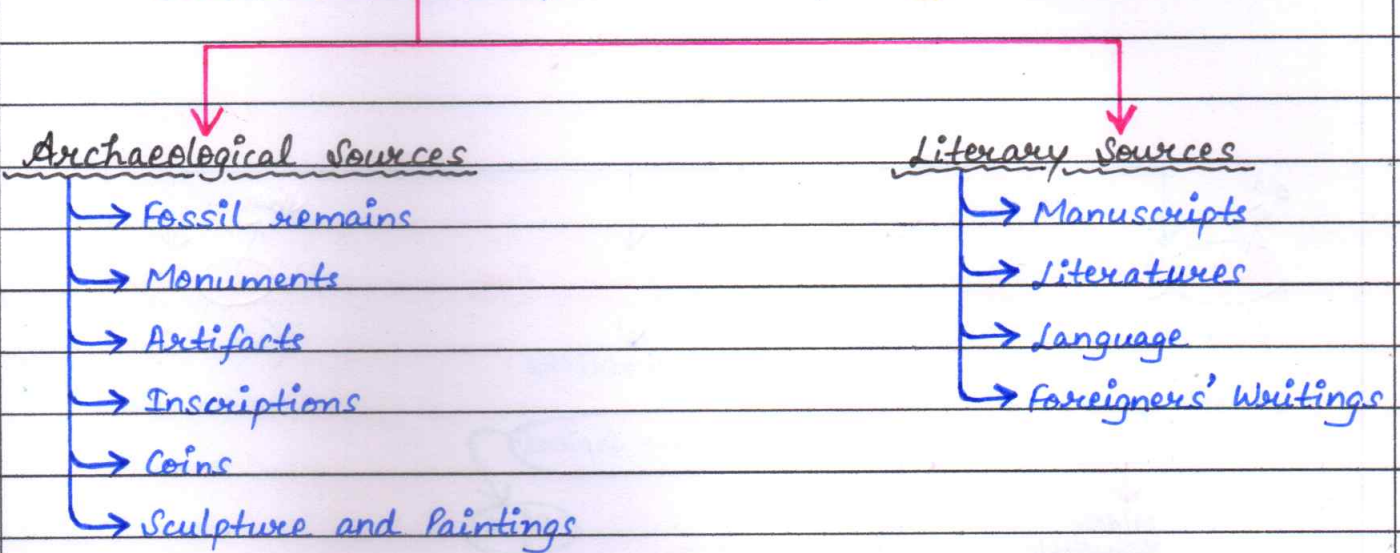 Archaeological Sources
Fossil remains
Monuments
Artifacts
Inscriptions
Coins
Sculpture and Paintings
Literary Sources
Manuscripts
Literatures
Language
Foreigners' Writings